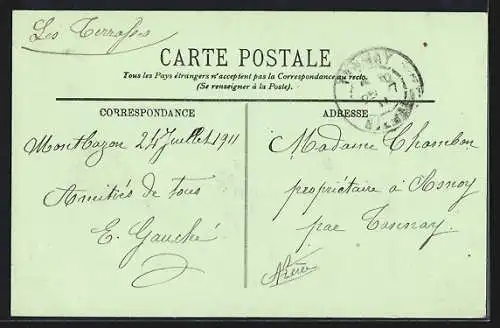 Les Terrasses
CARTE POSTALE
Tous les Pays étrangers n'acceptent pas la Correspondance au recto.
(Se renseigner à la Poste).
CORRESPONDANCE
Montbazon 24 Juillet 1911
Amitiés de tous
E. Gauché
ADRESSE
Madame Chambon
propriétaire à Asnoy
par Tannay.
Nièvre